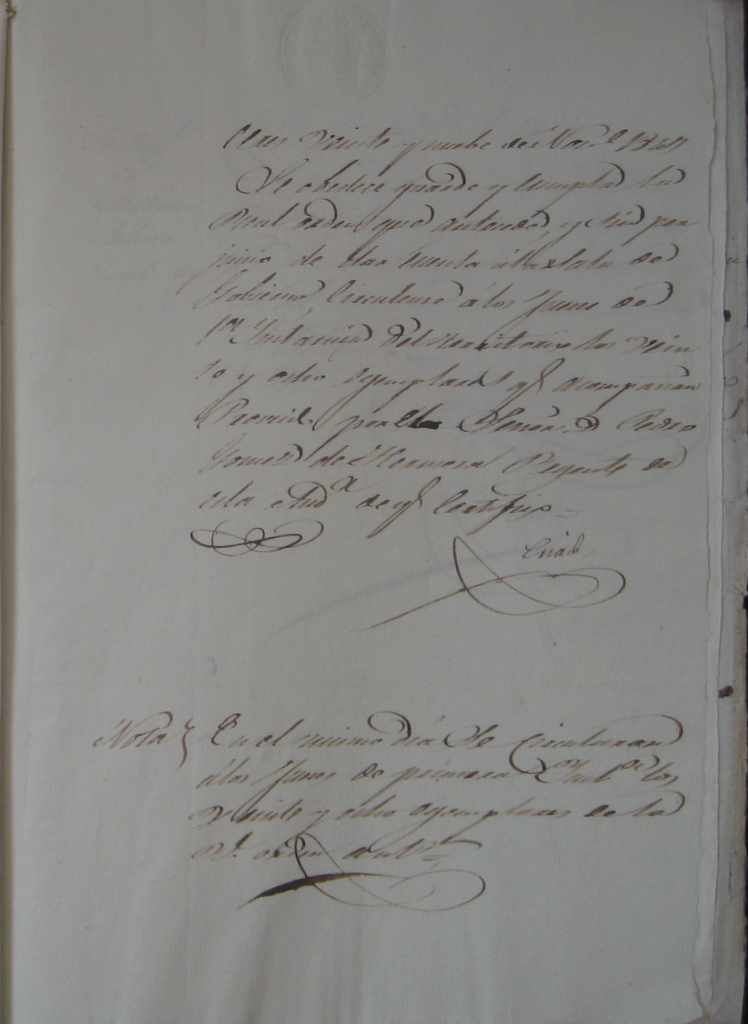 veinte y nuebe de Nov.e 1847
Se obedece guarde y cumpla la
Real orden que antecede, y sin per
juicio de dar cuenta á la Sala de
Gobierno, Circulense á los Jueces de
1.a Instancia del territorio los vein
te y ocho ejemplares q.e acompañan
Proveido por el Señor D. Pedro
Gomez de Hermosa Regente de
esta Aud.a de q.e Certifico =
Nota En el mismo dia Se Circularon
á los Jueces de primera Inst.a los
veinte y ocho ejemplares de la
R.l orden ant.r =